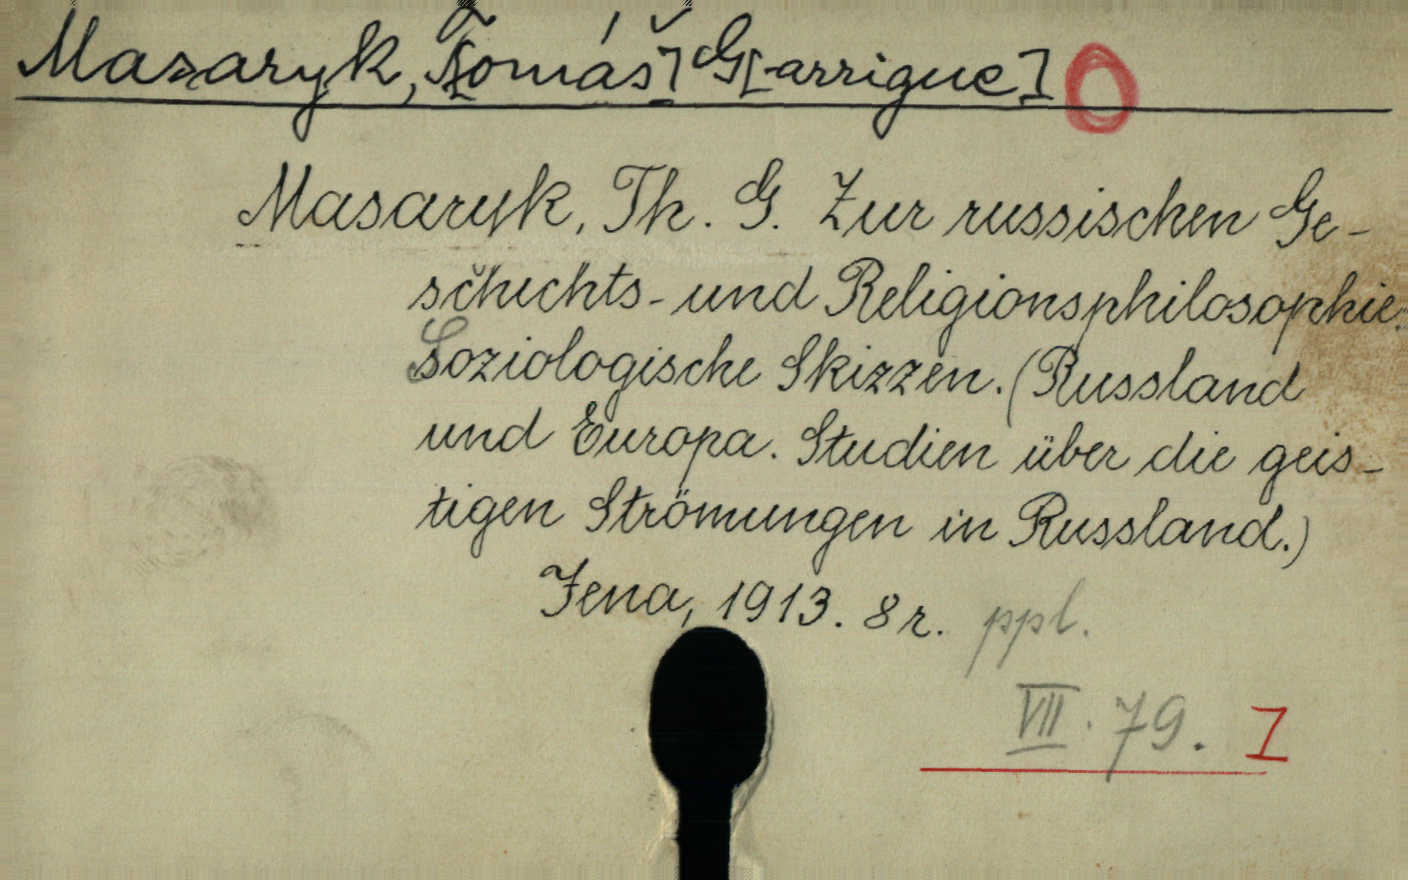 Masaryk, T[omáš] G[arrigue] O
Masaryk, Th. G. Zur russischen Ge-
schichts- und Religionsphilosophie.
Soziologische Skizzen. (Russland
und Europa. Studien über die geis-
tigen Strömungen in Russland.)
Jena, 1913. 8r. ppl.
VII. 79. I